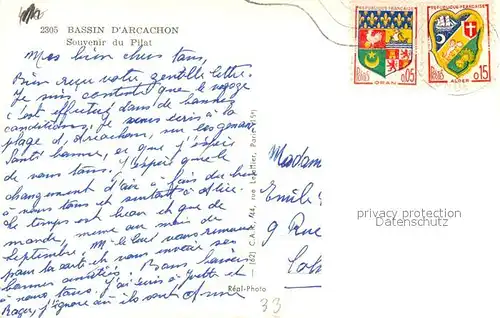 2305 BASSIN D'ARCACHON
Souvenir du Pilat
Mes bien chers tous,
Bien reçu votre gentille lettre.
Je suis contente que le voyage
c'est effectué dans de bonnes
conditions, je vous écris à la
plage d'Arcachon, sur les genoux
Santé bonne, et que j'espère
de vous tous. J'espère que le
changement d'air a fais du bien
à vous tous et surtout à
le temps est beau et que de
monde, même au mois de
Septembre. M. le Curé vous remercie
pour la carte et vous envoie ses
bonnes amitiés. Bons baisers
à vous tous. J'ai écris à Yvette et
Roger, j'ignore où ils sont Anna
(82) C.A.P., 44, rue Letellier, Paris (15e)
Réal-Photo
33
RÉPUBLIQUE FRANÇAISE
POSTES 0,05
ORAN
RÉPUBLIQUE FRANÇAISE
POSTES 0,15
ALGER
Madame
Emile
9 Rue
privacy protection
Datenschutz